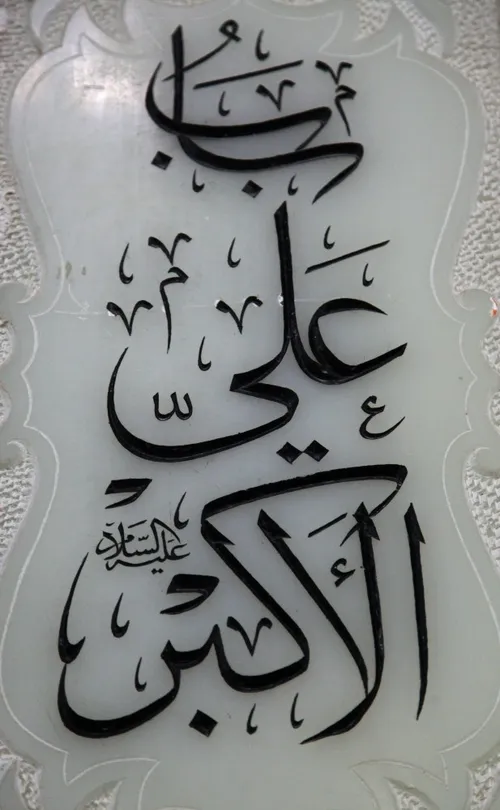 باب
عَليّ
الأكبر
عليه السّلام